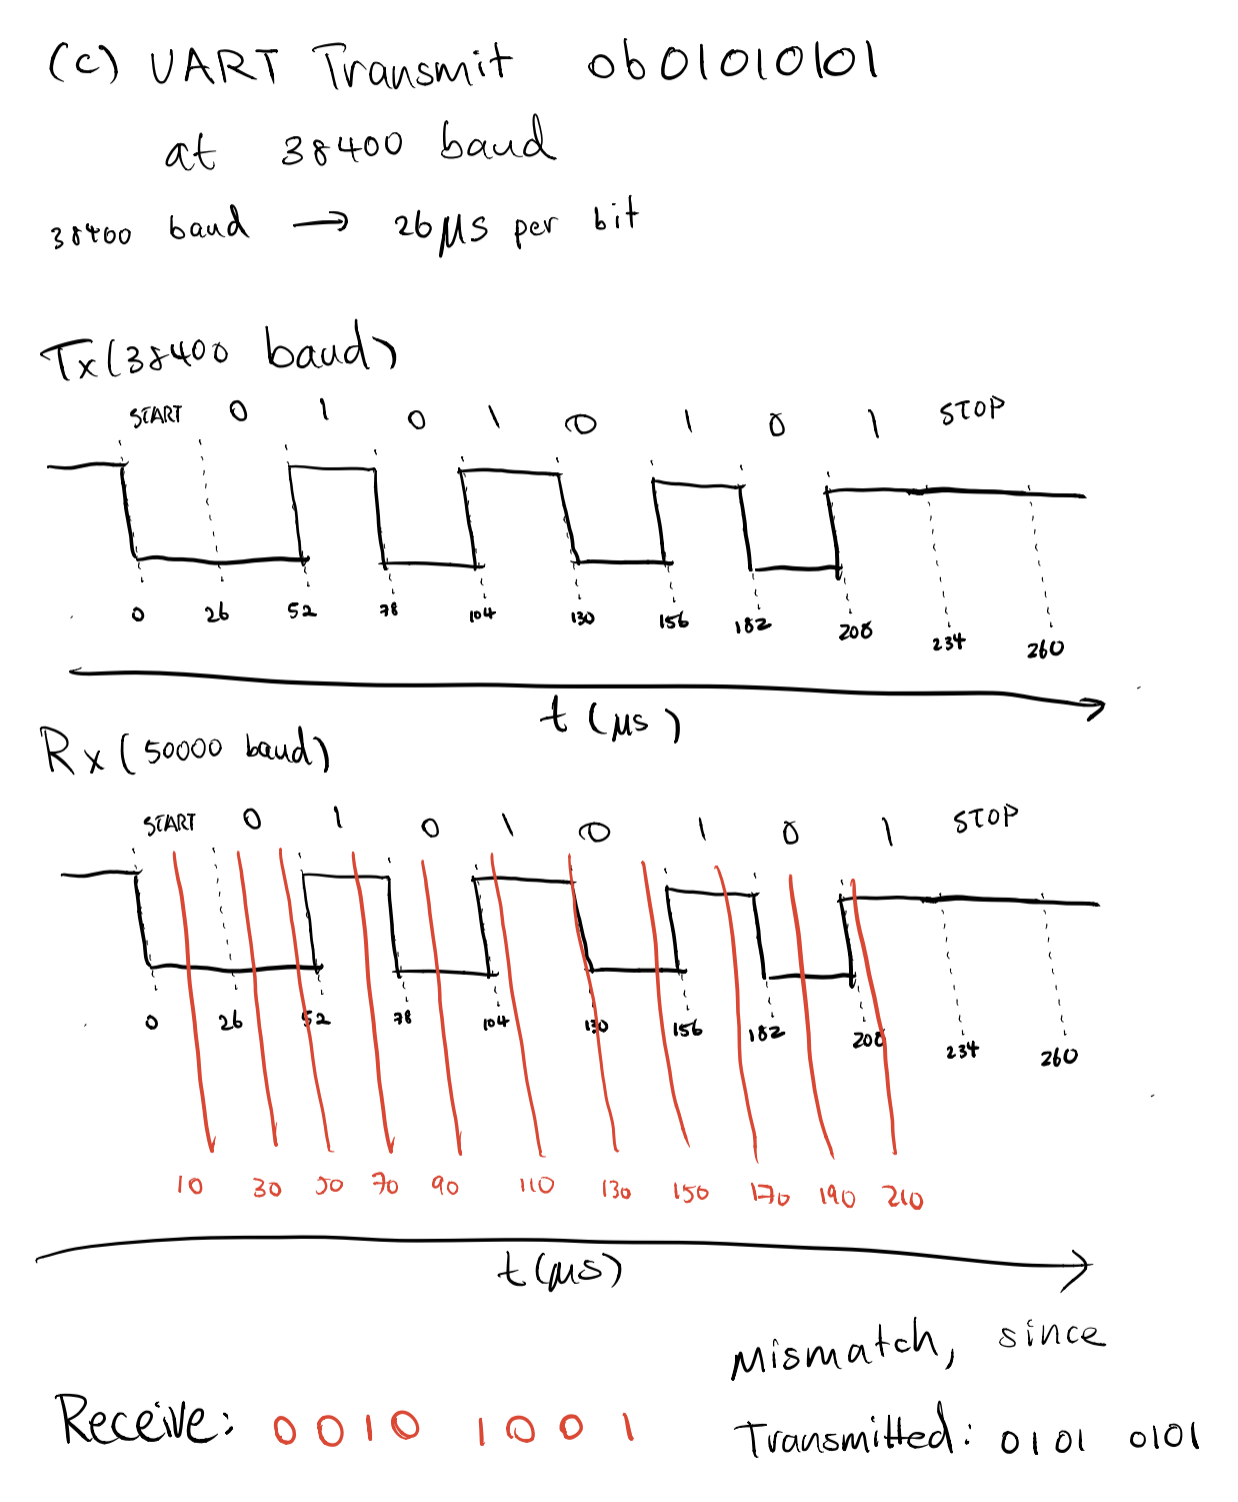 (c) UART Transmit 0b01010101
at 38400 baud
38400 baud → 26μs per bit
Tx(38400 baud)
START 0 1 0 1 0 1 0 1 STOP
0 26 52 78 104 130 156 182 208 234 260
t(μs)
Rx(50000 baud)
START 0 1 0 1 0 1 0 1 STOP
0 26 52 78 104 130 156 182 208 234 260
10 30 50 70 90 110 130 150 170 190 210
t(μs)
Mismatch, since
Receive: 0010 1001
Transmitted: 0101 0101